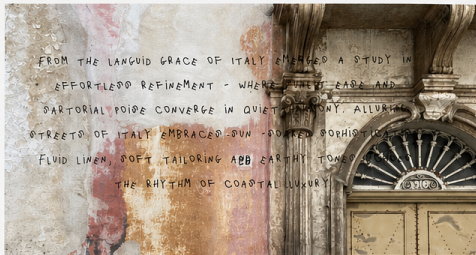 FROM THE LANGUID GRACE OF ITALY EMERGES A STUDY IN
EFFORTLESS REFINEMENT - WHERE EASE AND
SARTORIAL POISE CONVERGE IN QUIET HARMONY. ALLURING
STREETS OF ITALY EMBRACES SUN - SOAKED SOPHISTICATION
FLUID LINEN, SOFT TAILORING AND EARTHY TONES
THE RHYTHM OF COASTAL LUXURY